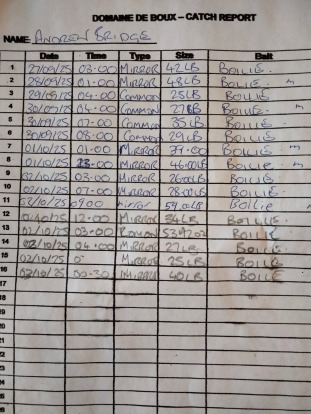 DOMAINE DE BOUX – CATCH REPORT
NAME ANDREW BRIDGE
Date Time Type Size Bait
1 27/09/25 03.00 MIRROR 42LB BOILIE.
2 28/09/25 01-00 MIRROR 48LB BOILIE.
3 29/09/25 04-00 COMMON 25LB BOILIE
4 30/09/25 04-00 COMMON 27LB BOILIE.
5 30/09/25 07-00 COMMON 35LB BOILIE.
6 30/09/25 08.00 COMMON 29LB BOILIE.
7 01/10/25 01.00 MIRROR 37.00 BOILIE.
8 01/10/25 23-00 MIRROR 46.00LB BOILIE.
9 02/10/25 03.00 MIRROR 26.00LB BOILIE.
10 02/10/25 07-00 MIRROR 28.00LB BOILIE.
11 02/10/25 0900 Mirror 59.00LB BOILIE.
12 12.00 MIRROR 34LB BOILIE.
13 02/10/25 03.00 53LB BOILIE.
14 02/10/25 04.00 MIRROR 27LB BOILIE.
15 02/10/25 MIRROR 25LB BOILIE
16 02/10/25 00-30 MIRROR 40LB BOILIE
17
18
19
20
21
22
23
24
25